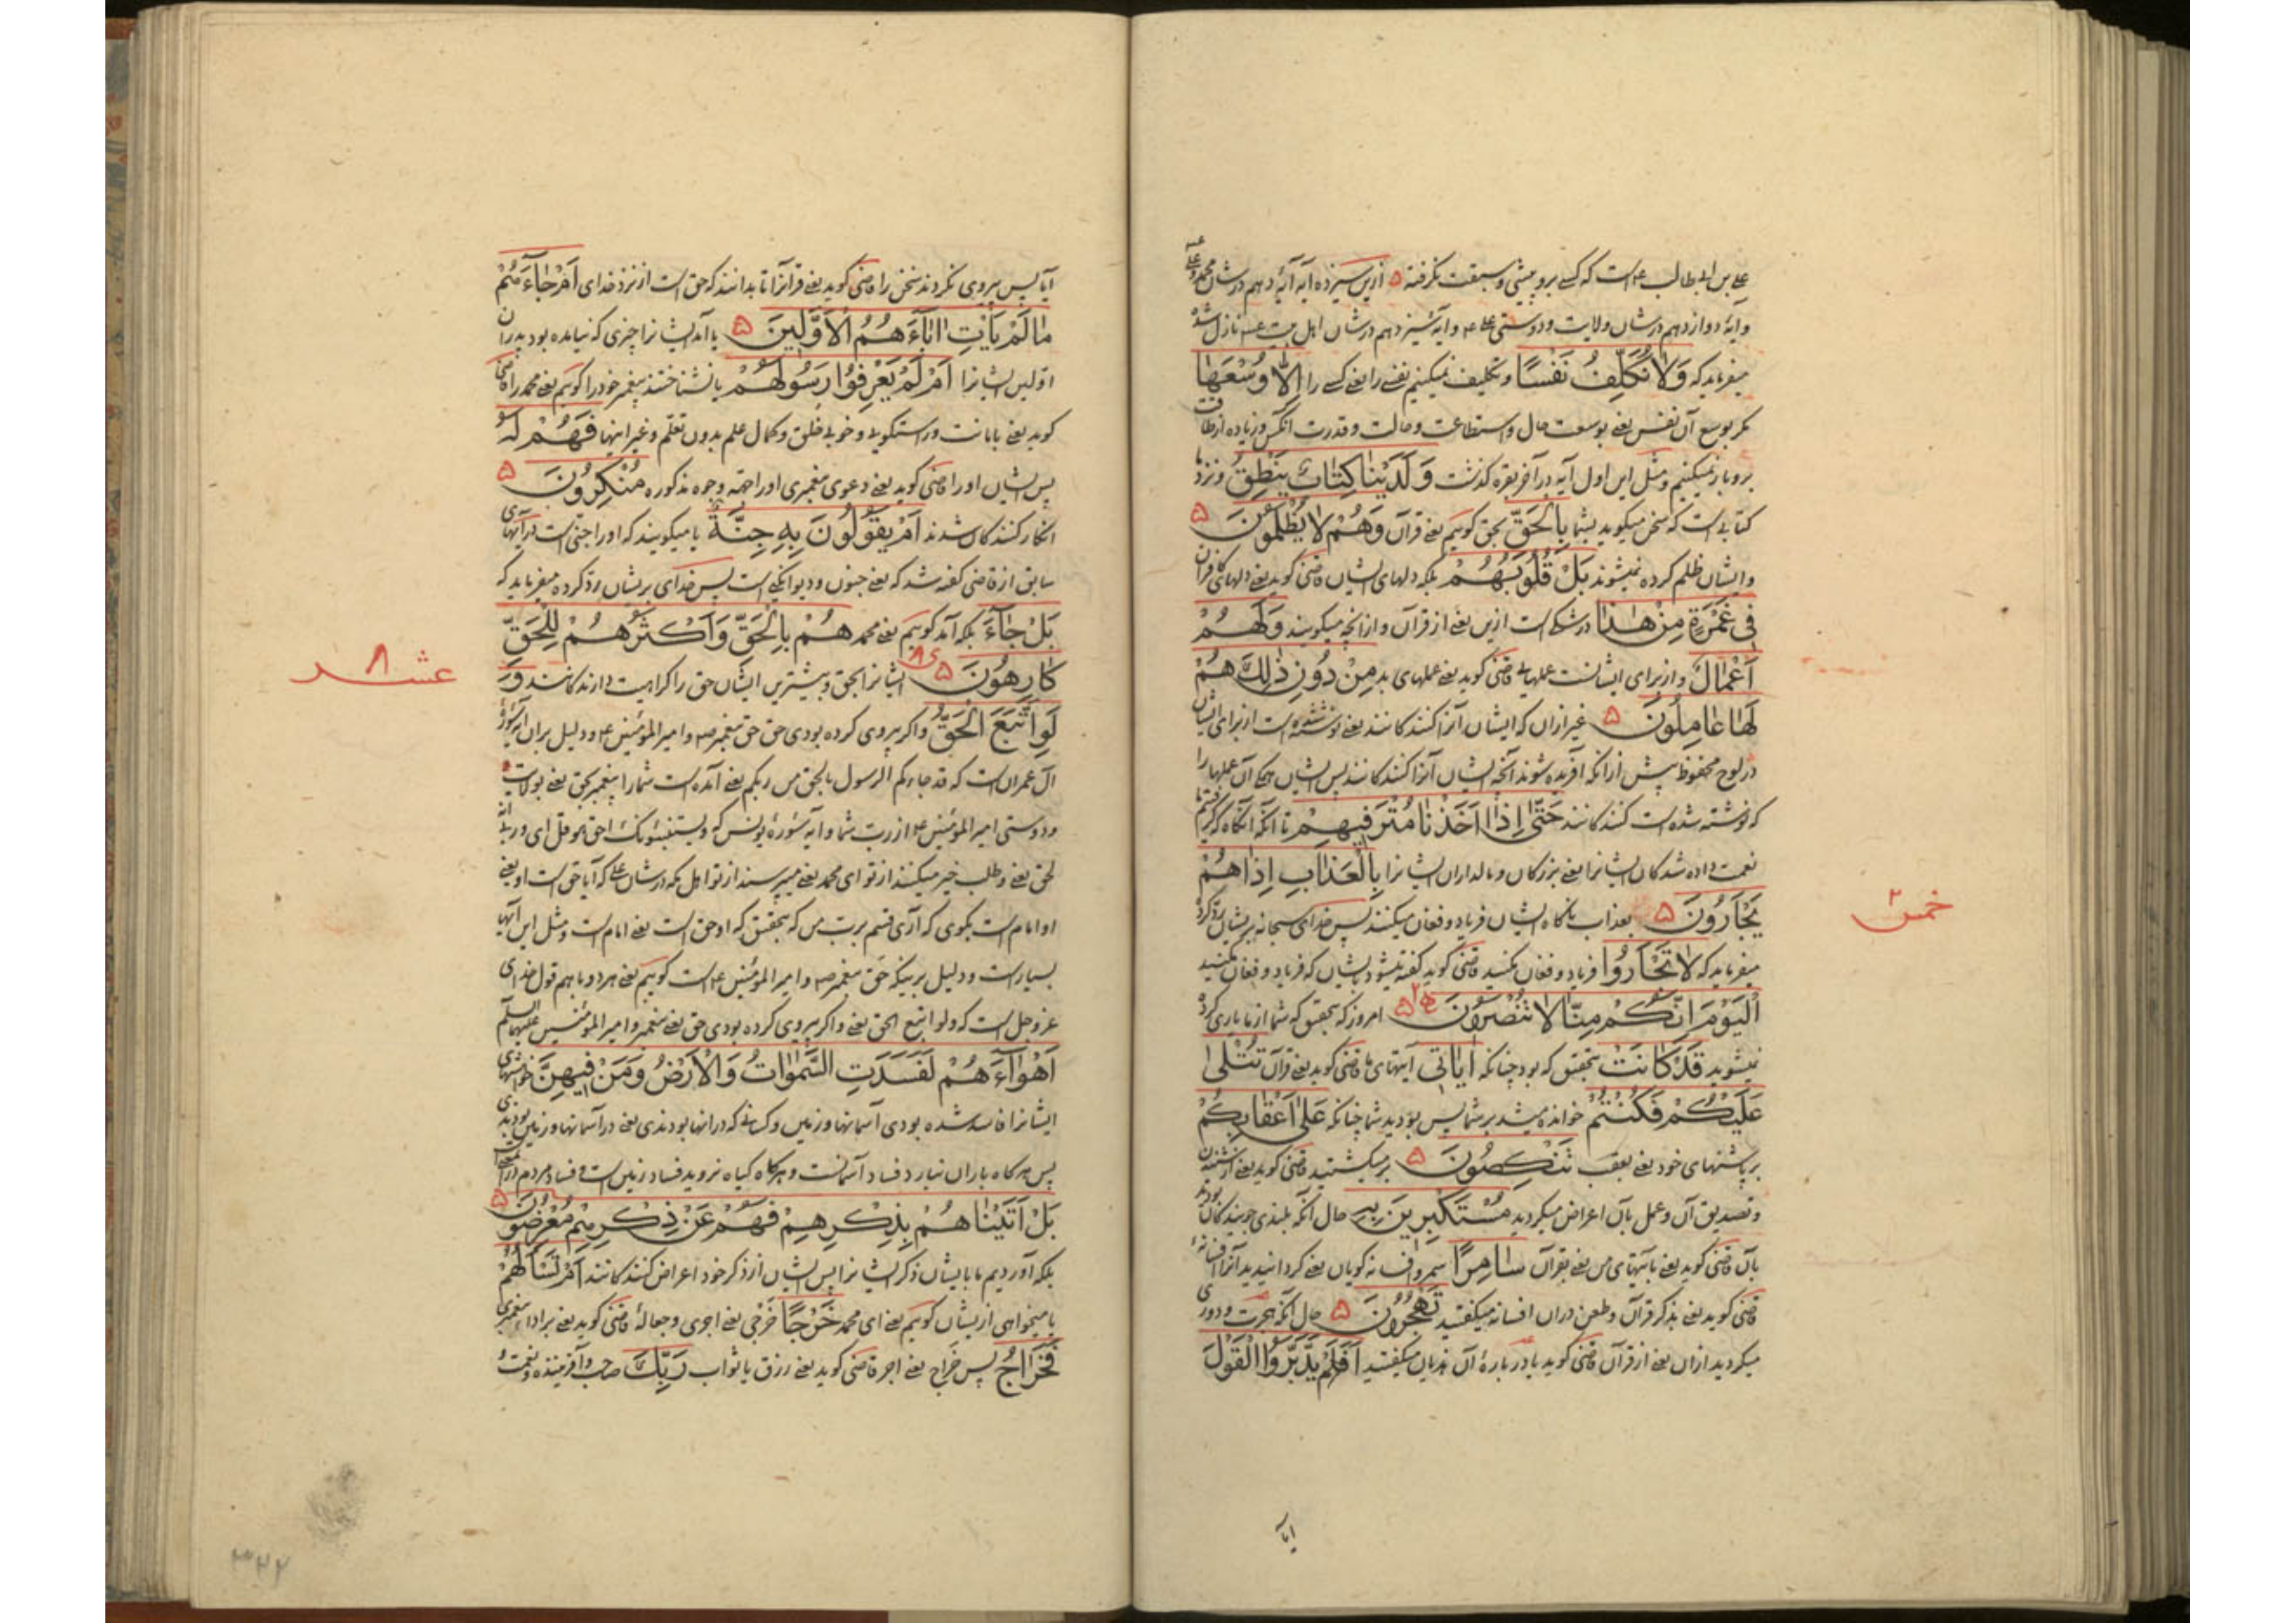 علی بن ابیطالب ع است که کسی برو پیشی و سبقت نکرفته ۵ ازین سیزده آیه آیهٔ دهم در شان محمد و علی
و آیهٔ دوازدهم در شان ولایت و دوستی علی ع و آیه سیزدهم در شان اهل بیت ع نازل شد
میفرماید که وَلَا نُكَلِّفُ نَفْسًا و تکلیف نمیکنیم نفسی را یعنی کسی را اِلَّا وُسْعَهَا
مکر بوسع آن نفس یعنی بوسعت حال و استطاعت و حالت و قدرت آنکس و زیاده از طاقت
برو بار نمیکنیم و مثل این اول آیه در آخر بقره کذشت وَلَدَيْنَا كِتَابٌ يَنْطِقُ و نزد ما
کتابی است که سخن میکوید بشما بِالْحَقِّ بحق کوییم یعنی قرآن وَهُمْ لَا يُظْلَمُونَ ۵
و ایشان ظلم کرده نمیشوند بَلْ قُلُوبُهُمْ بلکه دلهای ایشان قاضی کوید یعنی دلهای کافران
فِي غَمْرَةٍ مِنْ هٰذَا در شکی است ازین یعنی از قرآن و از آنچه میکویند وَلَهُمْ
اَعْمَالٌ و از برای ایشانست عملهایی قاضی کوید یعنی عملهای بد مِنْ دُونِ ذٰلِكَ هُمْ
لَهَا عَامِلُونَ ۵ غیر از آن که ایشان آنرا کنندکانند یعنی نوشته شده است از برای ایشان
در لوح محفوظ پیش از آنکه آفریده شوند آنچه ایشان آنرا کنندکانند پس ایشان همکی آن عملها را
که نوشته شده است کنندکانند حَتّٰى اِذَا اَخَذْنَا مُتْرَفِيهِمْ تا آنکه آنکاه که کرفتیم ما
نعمت داده شدکان ایشانرا یعنی بزرکان و مالداران ایشانرا بِالْعَذَابِ اِذَا هُمْ
يَجْأَرُونَ ۵ بعذاب ناکاه ایشان فریاد و فغان میکنند پس خدای سبحانه بریشان رد کرده
خمس ۲
میفرماید که لَا تَجْأَرُوا فریاد و فغان نکنید قاضی کوید کفته میشود بایشان که فریاد و فغان نکنید
اَلْيَوْمَ اِنَّكُمْ مِنَّا لَا تُنْصَرُونَ ۵ امروز که بتحقیق که شما از ما یاری کرده
نمیشوید قَدْ كَانَتْ بتحقیق که بود چنانکه اٰيَاتِي آیتهای ما قاضی کوید یعنی قرآن تُتْلٰى
عَلَيْكُمْ فَكُنْتُمْ خوانده میشد بر شما پس بودید شما چنانکه عَلٰى اَعْقَابِكُمْ
بر پاشنهای خود یعنی بعقب تَنْكِصُونَ ۵ برمیکشتید قاضی کوید یعنی از شنیدن
و تصدیق آن و عمل بآن اعراض میکردید مُسْتَكْبِرِينَ بِهِ حال آنکه بلندی جویندکان بودید
بآن قاضی کوید یعنی بآیتهای من یعنی بقرآن سَامِرًا سمر و افسانه کویان یعنی کردانیدید آنرا افسانه
قاضی کوید یعنی بذکر قرآن و طعن دران افسانه میکفتید تَهْجُرُونَ ۵ حال آنکه هجرت و دوری
میکردید ازان یعنی از قرآن قاضی کوید یا در بارهٔ آن هذیان میکفتید اَفَلَمْ يَدَّبَّرُوا الْقَوْلَ
آیا
آیا پس پیروی نکردند سخن را قاضی کوید یعنی قرآنرا تا بدانند که حق است از نزد خدای اَمْ جَاءَهُمْ
مَا لَمْ يَأْتِ اٰبَاءَهُمُ الْاَوَّلِينَ ۵ یا آمد ایشانرا چیزی که نیامده بود پدران
اولین ایشانرا اَمْ لَمْ يَعْرِفُوا رَسُولَهُمْ یا نشناختند پیغمبر خود را کوییم یعنی محمد را قاضی
کوید یعنی بامانت و راستکویی و خوبی خلق و کمال علم بدون تعلم و غیر اینها فَهُمْ لَهُ
پس ایشان او را قاضی کوید یعنی دعوی پیغمبری او را جهة وجوه مذکوره مُنْكِرُونَ ۵
انکار کنندکان شدند اَمْ يَقُولُونَ بِهِ جِنَّةٌ یا میکویند که او را جنّی است در آیتهای
سابق از قاضی کفته شد که یعنی جنون و دیوانکی است پس خدای بریشان رد کرده میفرماید که
بَلْ جَاءَ بلکه آمد کوییم یعنی محمد هُمْ بِالْحَقِّ وَاَكْثَرُهُمْ لِلْحَقِّ
كَارِهُونَ ۵ ایشانرا بحق و بیشترین ایشان حق را کراهیت دارندکانند وَ
عشر ۸
لَوِ اتَّبَعَ الْحَقُّ و اکر پیروی کرده بودی حق حق پیغمبر ص و امیر المؤمنین ع و دلیل بران آیه سورهٔ
آل عمران است که قد جاءکم الرسول بالحق من ربکم یعنی آمده است شما را پیغمبر بحق یعنی بولایت
و دوستی امیر المؤمنین ع از رب شما و آیه سورهٔ یونس که ویستنبئونک احق هو قل ای و ربی انه
لحق یعنی و طلب خبر میکنند از تو ای محمد یعنی میپرسند از تو اهل مکه در شان علی که آیا حق است او یعنی
او امام است بکوی که آری قسم برب من که بتحقیق که او حق است یعنی امام است و مثل این آیها
بسیار است و دلیل بر بینکه حق پیغمبر ص و امیر المؤمنین ع است کوییم یعنی هر دو با هم قول خدای
عز و جل است که ولو اتبع الحق یعنی و اکر پیروی کرده بودی حق یعنی پیغمبر و امیر المؤمنین علیهما السلام
اَهْوَاءَهُمْ لَفَسَدَتِ السَّمٰوَاتُ وَالْاَرْضُ وَمَنْ فِيهِنَّ خواهشهای
ایشانرا فاسد شده بودی آسمانها و زمین و کسانی که درانها بودندی یعنی در آسمانها و زمین بودندی
پس هرکاه باران نبارد فساد آسمانست و هرکاه کیاه نروید فساد زمین است و فساد مردم
بَلْ اَتَيْنَاهُمْ بِذِكْرِهِمْ فَهُمْ عَنْ ذِكْرِهِمْ مُعْرِضُونَ ۵
بلکه آوردیم ما بایشان ذکر ایشانرا پس ایشان از ذکر خود اعراض کنندکانند اَمْ تَسْأَلُهُمْ
یا میخواهی ازیشان کوییم یعنی ای محمد خَرْجًا خرجی یعنی اجری و جعالهٔ قاضی کوید یعنی بر اداء پیغمبری
فَخَرَاجُ پس خراج یعنی اجر قاضی کوید یعنی رزق یا ثواب رَبِّكَ صاحب و آفریننده و نعمت
۳۲۲